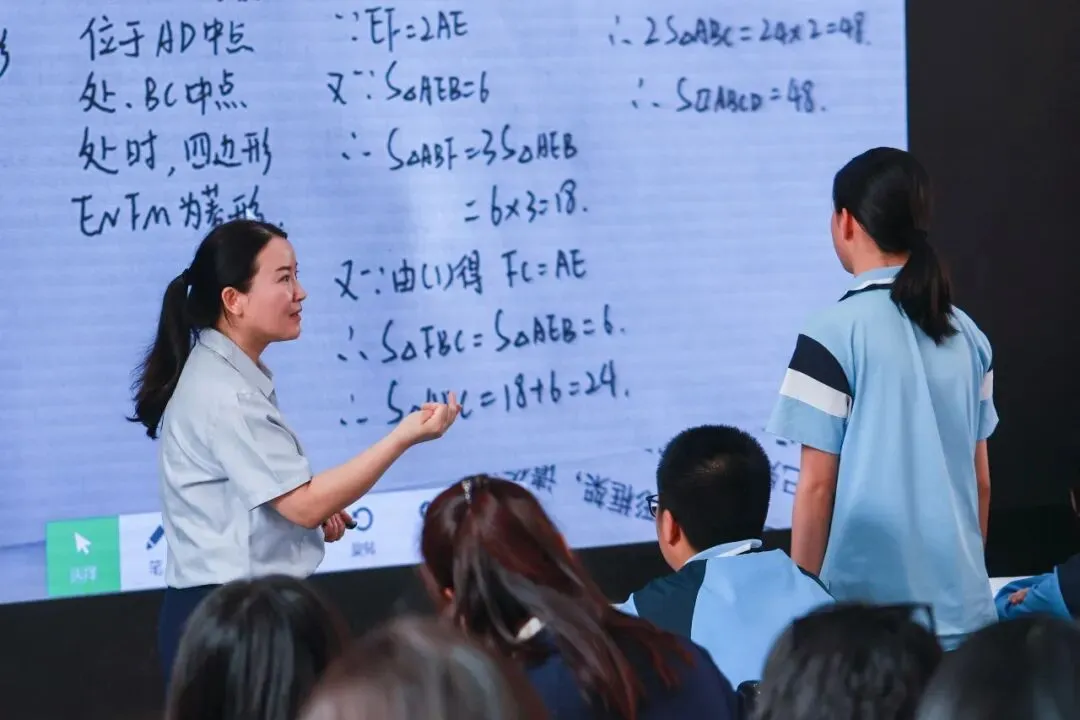 位于AD中点
处、BC中点
处时,四边形
ENFM为菱形.
∵EF=2AE
又∵S△AEB=6
∴S△ABF=3S△AEB
=6×3=18.
又∵由(1)得 FC=AE
∴S△FBC=S△AEB=6.
=18+6=24.
∴2S△ABC=24×2=48.
∴S▱ABCD=48.
框架,请
选择
笔